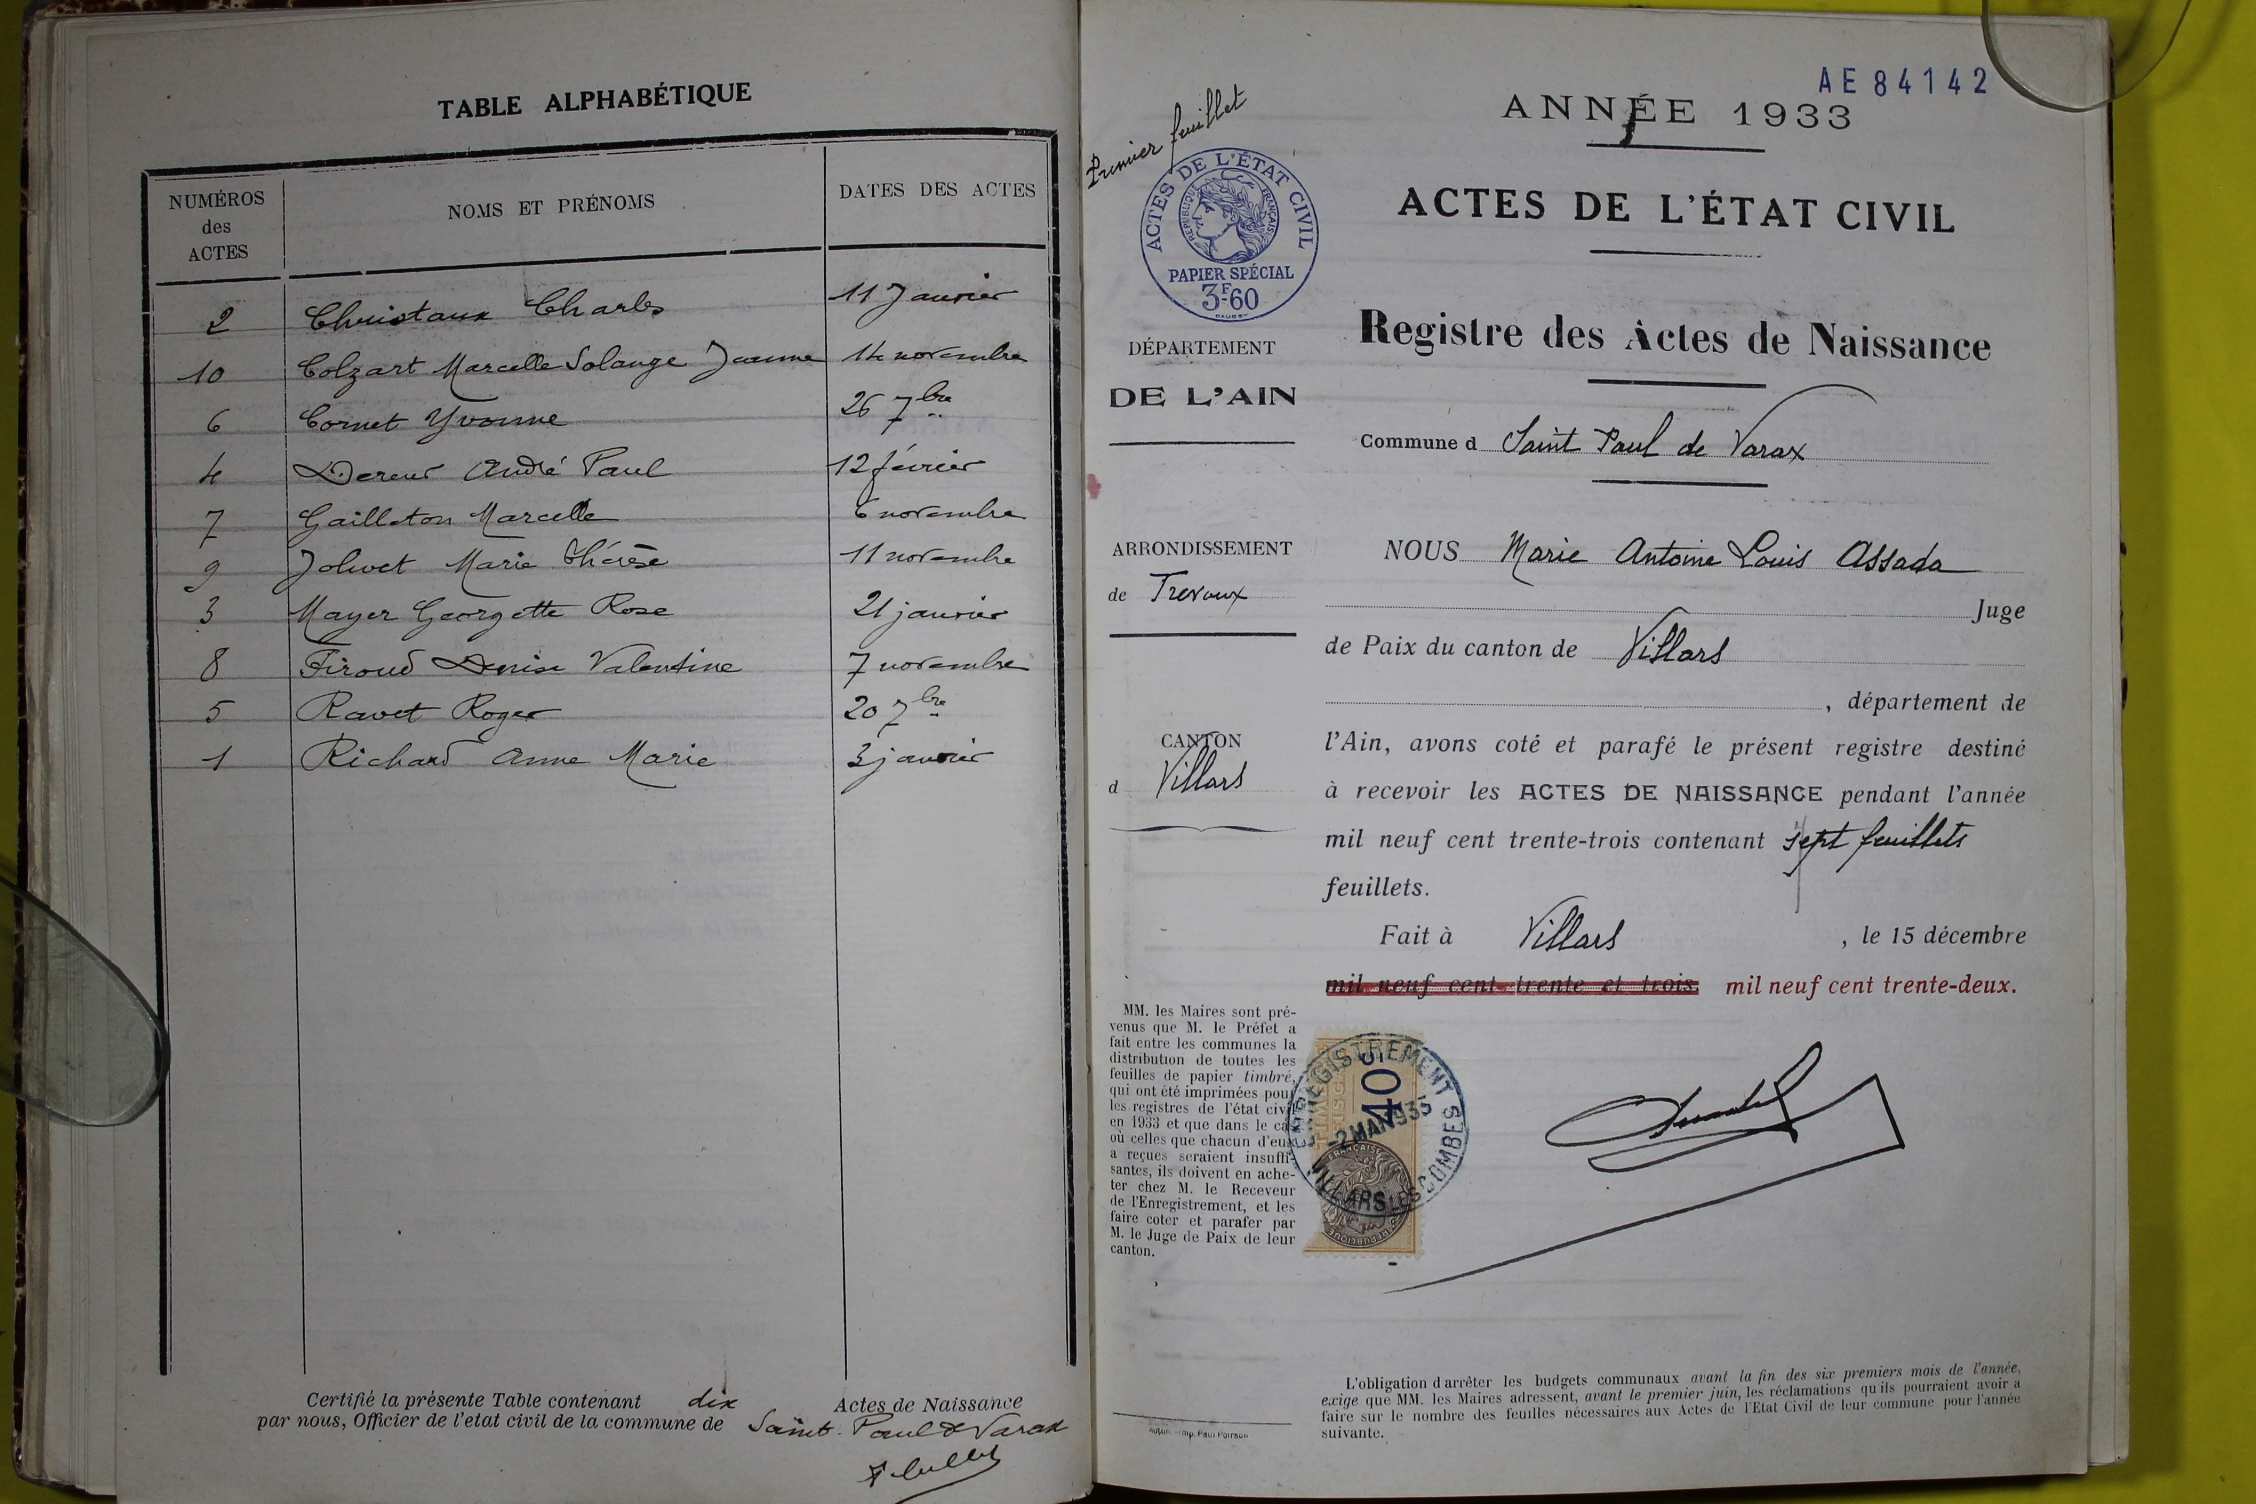 TABLE ALPHABÉTIQUE
NUMÉROS des ACTES
NOMS ET PRÉNOMS
DATES DES ACTES
2 Christaux Charles 11 Janvier
10 Colzart Marcelle Solange Jeanne 14 novembre
6 Cornet Yvonne 26 7bre
4 André Paul 12 février
7 Gailleton Marcelle 6 novembre
9 Jolivet Marie Thérèse 11 novembre
3 Mayer Georgette Rose 21 janvier
8 Denise Valentine 7 novembre
5 Ravet Roger 20 7bre
1 Richard Anne Marie 3 janvier
Certifié la présente Table contenant dix Actes de Naissance
par nous, Officier de l'etat civil de la commune de Saint-Paul de Varax
AE 84142
Premier feuillet
ACTES DE L'ÉTAT CIVIL
RÉPUBLIQUE FRANÇAISE
PAPIER SPÉCIAL
3F-60
DÉPARTEMENT
DE L'AIN
ARRONDISSEMENT
de Trevoux
CANTON
d Villars
MM. les Maires sont pré-
venus que M. le Préfet a
fait entre les communes la
distribution de toutes les
feuilles de papier timbré,
qui ont été imprimées pour
les registres de l'état civil
en 1933 et que dans le cas
où celles que chacun d'eux
a reçues seraient insuffi-
santes, ils doivent en ache-
ter chez M. le Receveur
de l'Enregistrement, et les
faire coter et parafer par
M. le Juge de Paix de leur
canton.
Imp. Paul Poirson
ANNÉE 1933
ACTES DE L'ÉTAT CIVIL
Registre des Actes de Naissance
Commune d Saint Paul de Varax
NOUS Marie Antoine Louis Assada
Juge
de Paix du canton de Villars
, département de
l'Ain, avons coté et parafé le présent registre destiné
à recevoir les ACTES DE NAISSANCE pendant l'année
mil neuf cent trente-trois contenant sept feuillets
feuillets.
Fait à Villars , le 15 décembre
mil neuf cent trente et trois mil neuf cent trente-deux.
ENREGISTREMENT
40
VILLARS LES DOMBES
L'obligation d'arrêter les budgets communaux avant la fin des six premiers mois de l'année,
exige que MM. les Maires adressent, avant le premier juin, les réclamations qu'ils pourraient avoir a
faire sur le nombre des feuilles nécessaires aux Actes de l'Etat Civil de leur commune pour l'année
suivante.